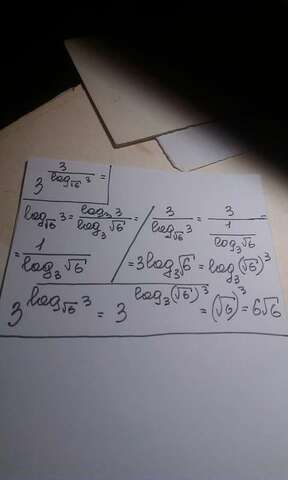 3^(3/log_√6 3) =
log_√6 3 = log_3 3/log_3 √6 = / 3/log_√6 3 = 3/(1/log_3 √6) =
= 1/log_3 √6 / = 3log_3 √6 = log_3 (√6)^3
3^(log_√6 3) = 3^(log_3 (√6)^3) = (√6)^3 = 6√6